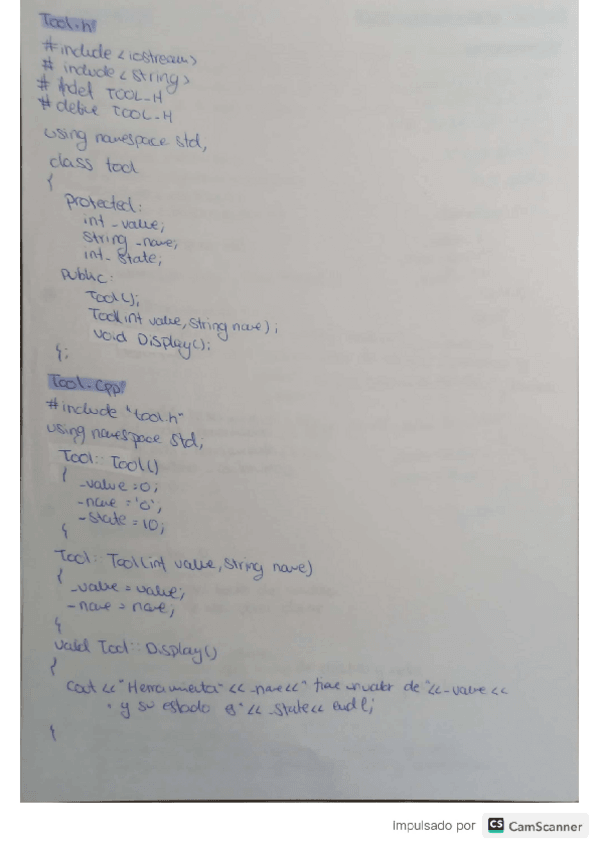 Tool.h
#include <iostream>
# include <string>
# ifndef TOOL_H
# define TOOL_H
using namespace std;
class tool
{
protected:
int _value;
string _name;
int _state;
public:
Tool();
Tool(int value, string name);
void Display();
};
Tool.cpp
#include "tool.h"
using namespace std;
Tool::Tool()
{
_value = 0;
_name = '0';
_state = 10;
}
Tool::Tool(int value, string name)
{
_value = value;
_name = name;
}
void Tool::Display()
{
cout << "Herramienta" << _name << " tiene un valor de " << _value <<
" y su estado es" << _state << endl;
}
Impulsado por CS CamScanner